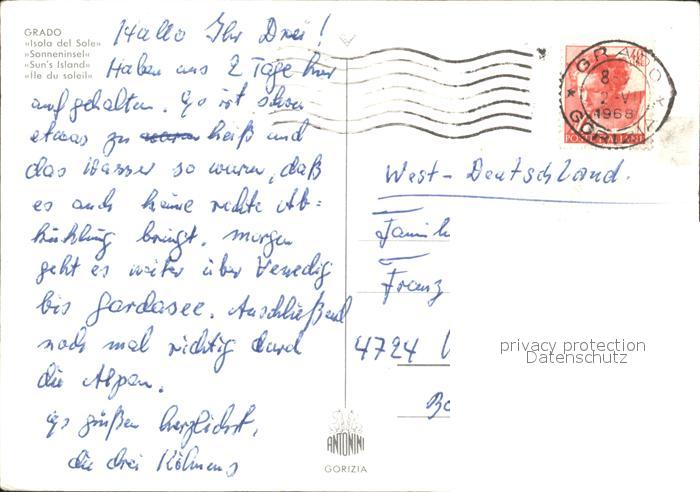 GRADO
«Isola del Sole»
«Sonneninsel»
«Sun's Island»
«Ile du soleil»
Hallo Ihr Drei!
Haben uns 2 Tage hier
aufgehalten. Es ist schon
etwas zu heiß und
das Wasser so warm, daß
es auch keine rechte Ab=
kühlung bringt. Morgen
geht es weiter über Venedig
bis Gardasee. Anschließend
noch mal richtig durch
die Alpen.
Es grüßen herzlichst,
die drei
GRADO
8
2-V
1968
GORIZIA
POSTE ITALIANE
West-Deutschland.
Famil
Franz
4724
privacy protection
Datenschutz
ANTONINI
GORIZIA